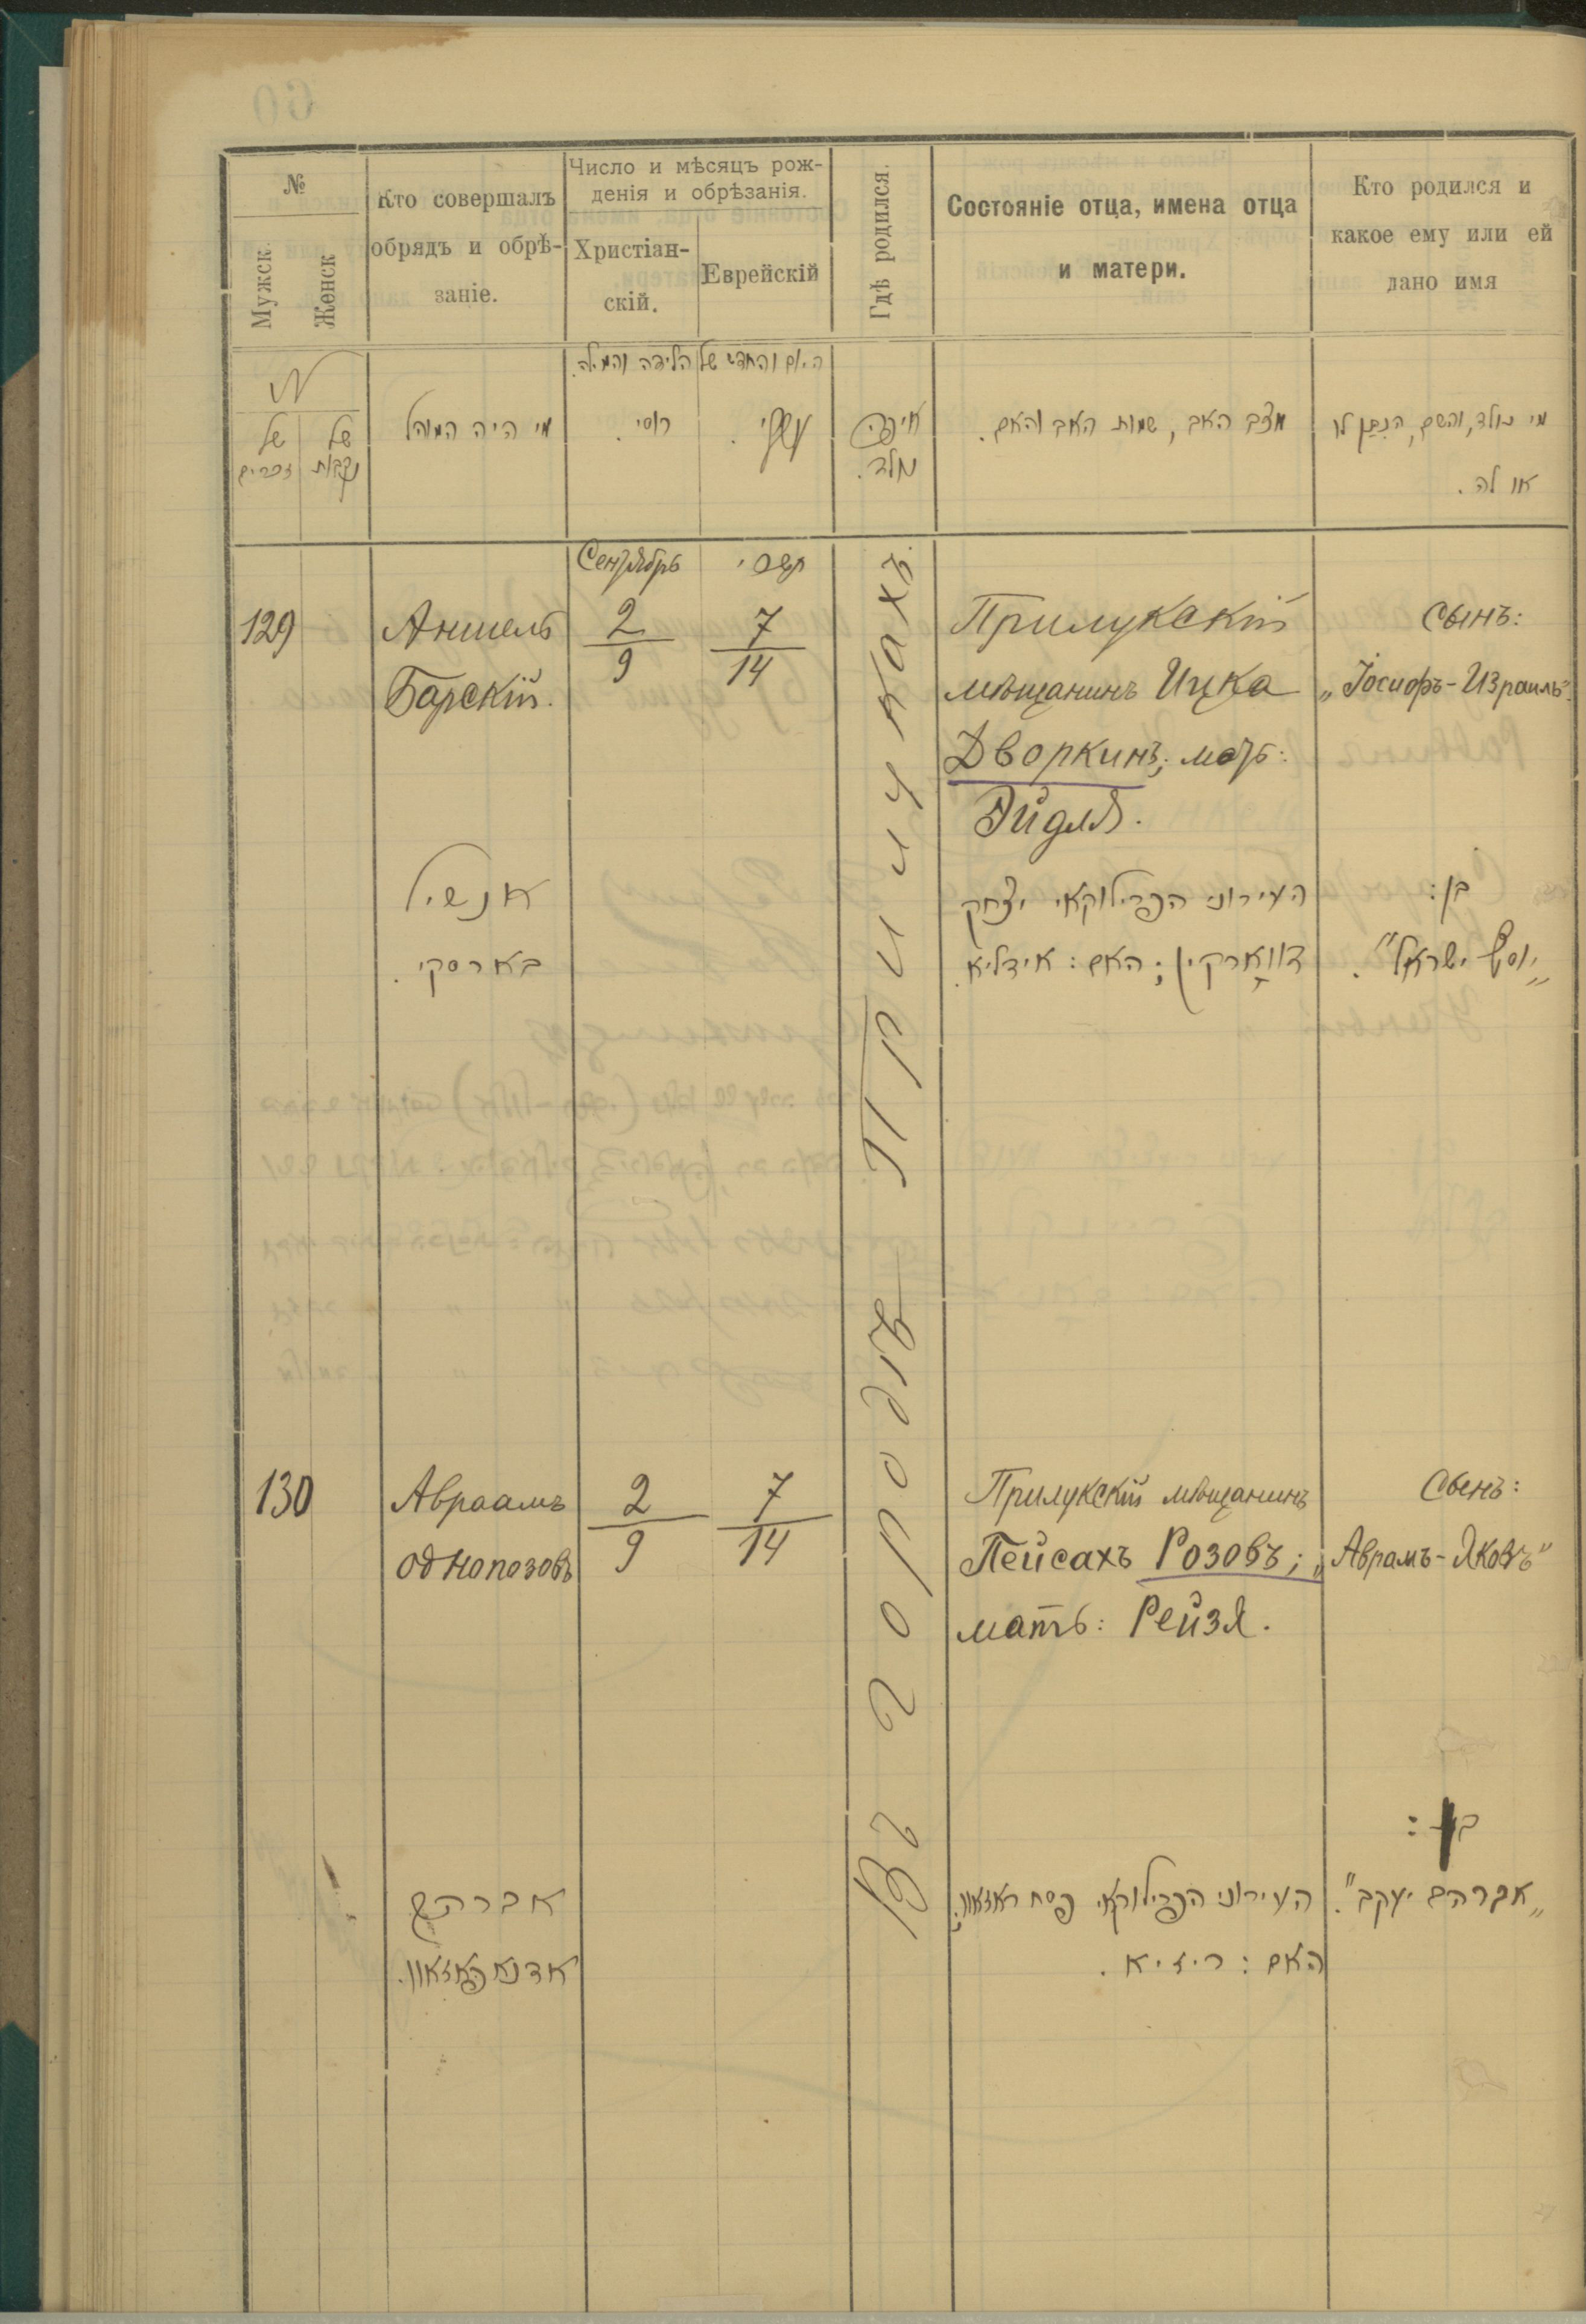 №
Мужск.
Женск
Кто совершалъ
обрядъ и обрѣ-
заніе.
Число и мѣсяцъ рож-
денія и обрѣзанія.
Христіан-
скій.
Еврейскій
Гдѣ родился.
Состояніе отца, имена отца
и матери.
Кто родился и
какое ему или ей
дано имя
היום והחדש של הלידה והמילה.
N
של
זכרים
של
נקבות
מי היה המוהל
רוסי.
איפה
נולד.
מצב האב, שמות האב והאם.
מי נולד, והשם, הנתן לו
או לה.
Сентябрь
תשרי
129
Аншель
Барскій.
2
9
7
14
Прилукскій
мѣщанинъ Ицка
Дворкинъ; мать:
Эйдля.
сынъ:
„Іосифъ-Израиль".
אנשיל
בארסקי.
העירוני הפרילוקאי יצחק
דווארקין; האם: אידליא.
בן:
„יוסף ישראל".
Въ городѣ Прилукахъ.
130
Авраамъ
Однопозовъ
2
9
7
14
Прилукскій мѣщанинъ
Пейсахъ Розовъ;
мать: Рейзя.
Сынъ:
„Аврамъ-Яковъ"
אברהם
אדנאפאזאוו.
העירוני הפרילוקאי פסח ראזאוו;
האם: ריזיא.
בן:
„אברהם יעקב".